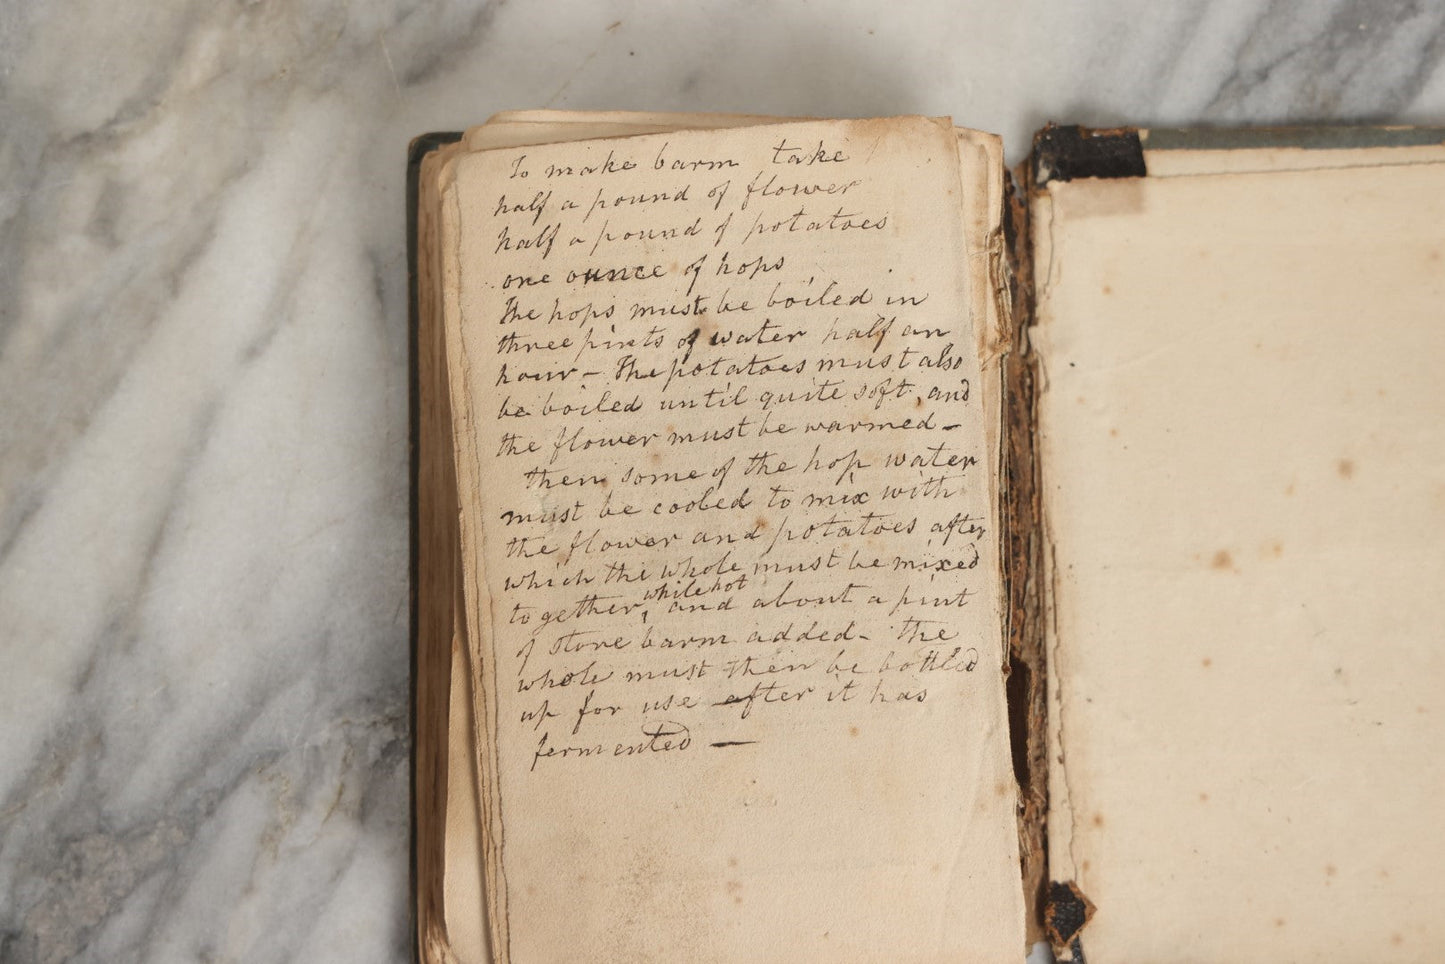 To make barm take
half a pound of flower
half a pound of potatoes
one ounce of hops
The hops must be boiled in
three pints of water half an
hour – The potatoes must also
be boiled until quite soft, and
the flower must be warmed –
then some of the hop water
must be cooled to mix with
the flower and potatoes after
which the whole must be mixed
together, while hot and about a pint
of store barm added – the
whole must then be bottled
up for use after it has
fermented —